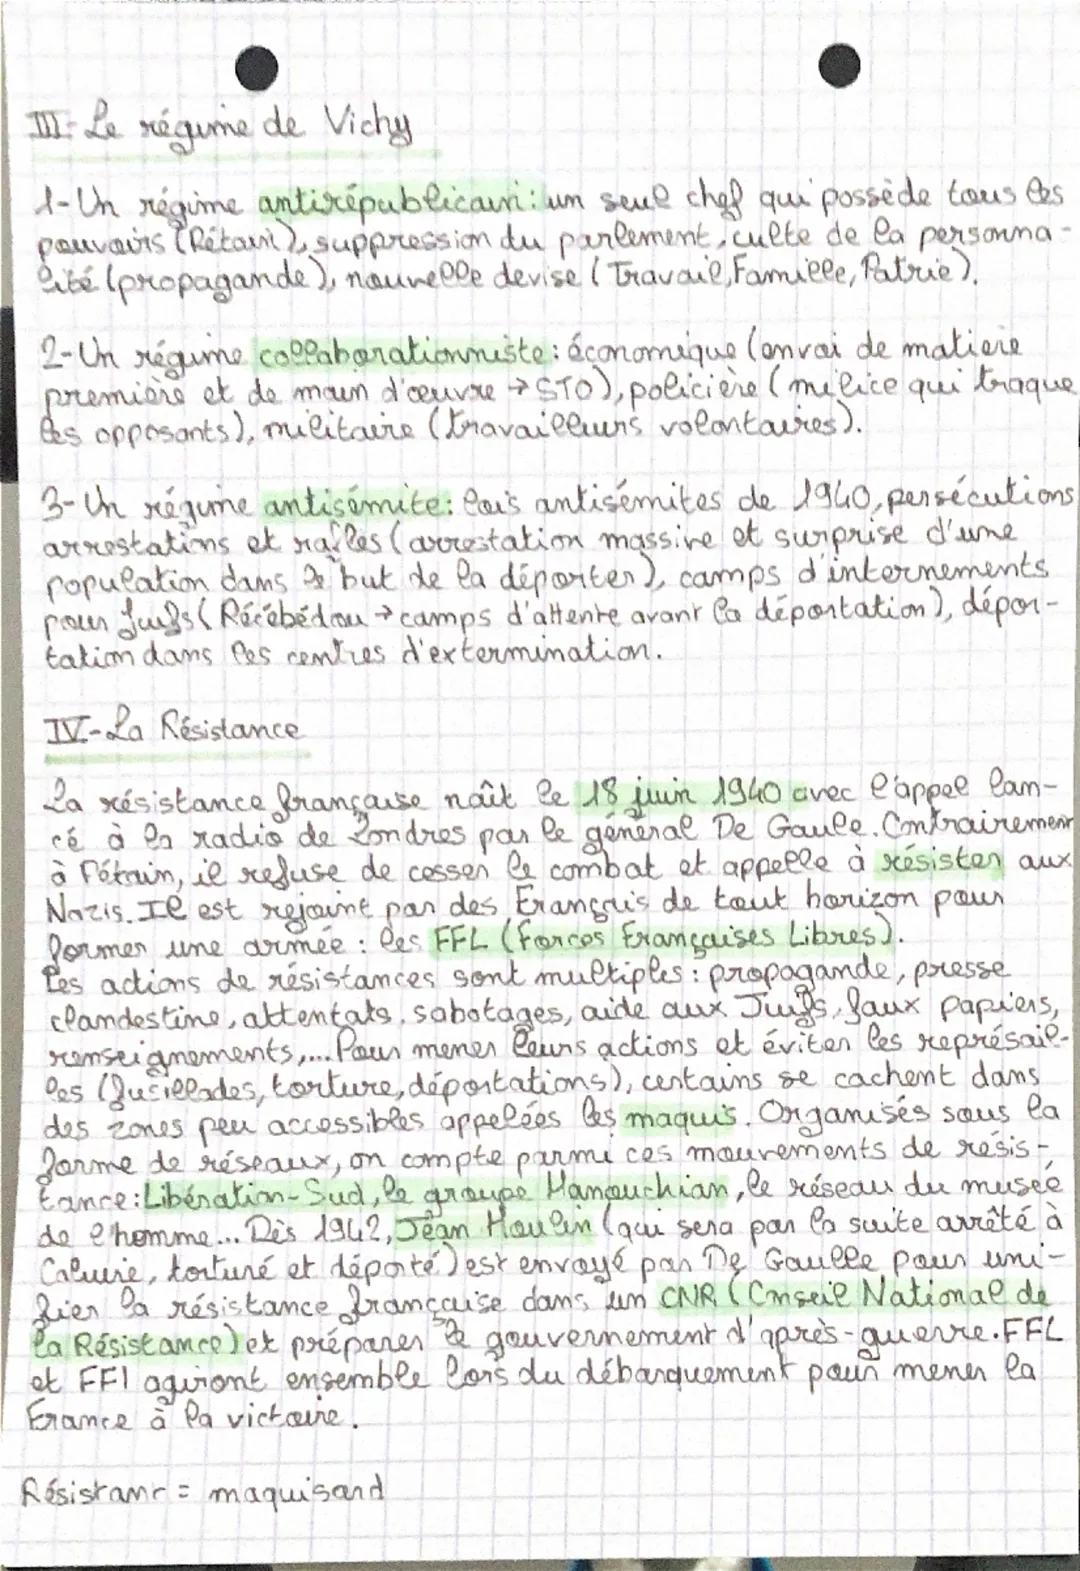 III- Le régime de Vichy
1-Un régime antirépublicain: un seul chef qui possède tous les
pouvoirs (Pétain), suppression du parlement, culte de la personna-
lité (propagande), nouvelle devise (Travail, Famille, Patrie).
2-Un régime collaborationniste: économique (envoi de matière
première et de main d'œuvre → STO), policière (milice qui traque
les opposants), militaire (travailleurs volontaires).
3-Un régime antisémite: lois antisémites de 1940, persécutions
arrestations et rafles (arrestation massive et surprise d'une
population dans le but de la déporter), camps d'internements
pour Juifs (Récébédou → camps d'attente avant la déportation), dépor-
tation dans les centres d'extermination.
IV-La Résistance
La résistance française naît le 18 juin 1940 avec l'appel lan-
cé à la radio de Londres par le général De Gaule. Contrairement
à Pétain, il refuse de cesser le combat et appelle à résister aux
Nazis. Il est rejoint par des Français de tout horizon pour
former une armée : les FFL (Forces Françaises Libres).
Les actions de résistances sont multiples : propagande, presse
clandestine, attentats, sabotages, aide aux Juifs, faux papiers,
renseignements,... Pour mener leurs actions et éviter les représail-
les (fusillades, torture, déportations), certains se cachent dans
des zones peu accessibles appelées les maquis. Organisés sous la
forme de réseaux, on compte parmi ces mouvements de résis-
tance: Libération-Sud, le groupe Manouchian, le réseau du musée
de l'homme... Dès 1942, Jean Moulin (qui sera par la suite arrêté à
Caluire, torturé et déporté) est envoyé par De Gaulle pour uni-
fier la résistance française dans un CNR (Conseil National de
la Résistance) et préparer le gouvernement d'après-guerre. FFL
et FFI agiront ensemble lors du débarquement pour mener la
France à la victoire.
Résistant = maquisard